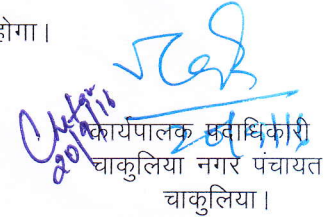 होगा।
20/9/16
कार्यपालक पदाधिकारी
चाकुलिया नगर पंचायत
चाकुलिया।